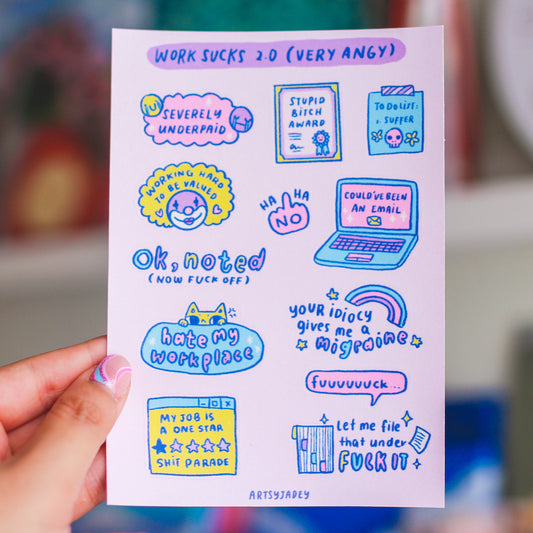 WORK SUCKS 2.0 (VERY ANGY)
SEVERELY
UNDERPAID
STUPID
BITCH
AWARD
TO DO LIST:
1. SUFFER
WORKING HARD
TO BE VALUED
HA HA
NO
COULD'VE BEEN
AN EMAIL
OK, noted
(NOW FUCK OFF)
YOUR IDIOCY
gives me a
migraine
hate my
workplace
fuuuuuuck...
MY JOB IS
A ONE STAR
SHIT PARADE
Let me file
that under
FUCK IT
ARTSYJADEY